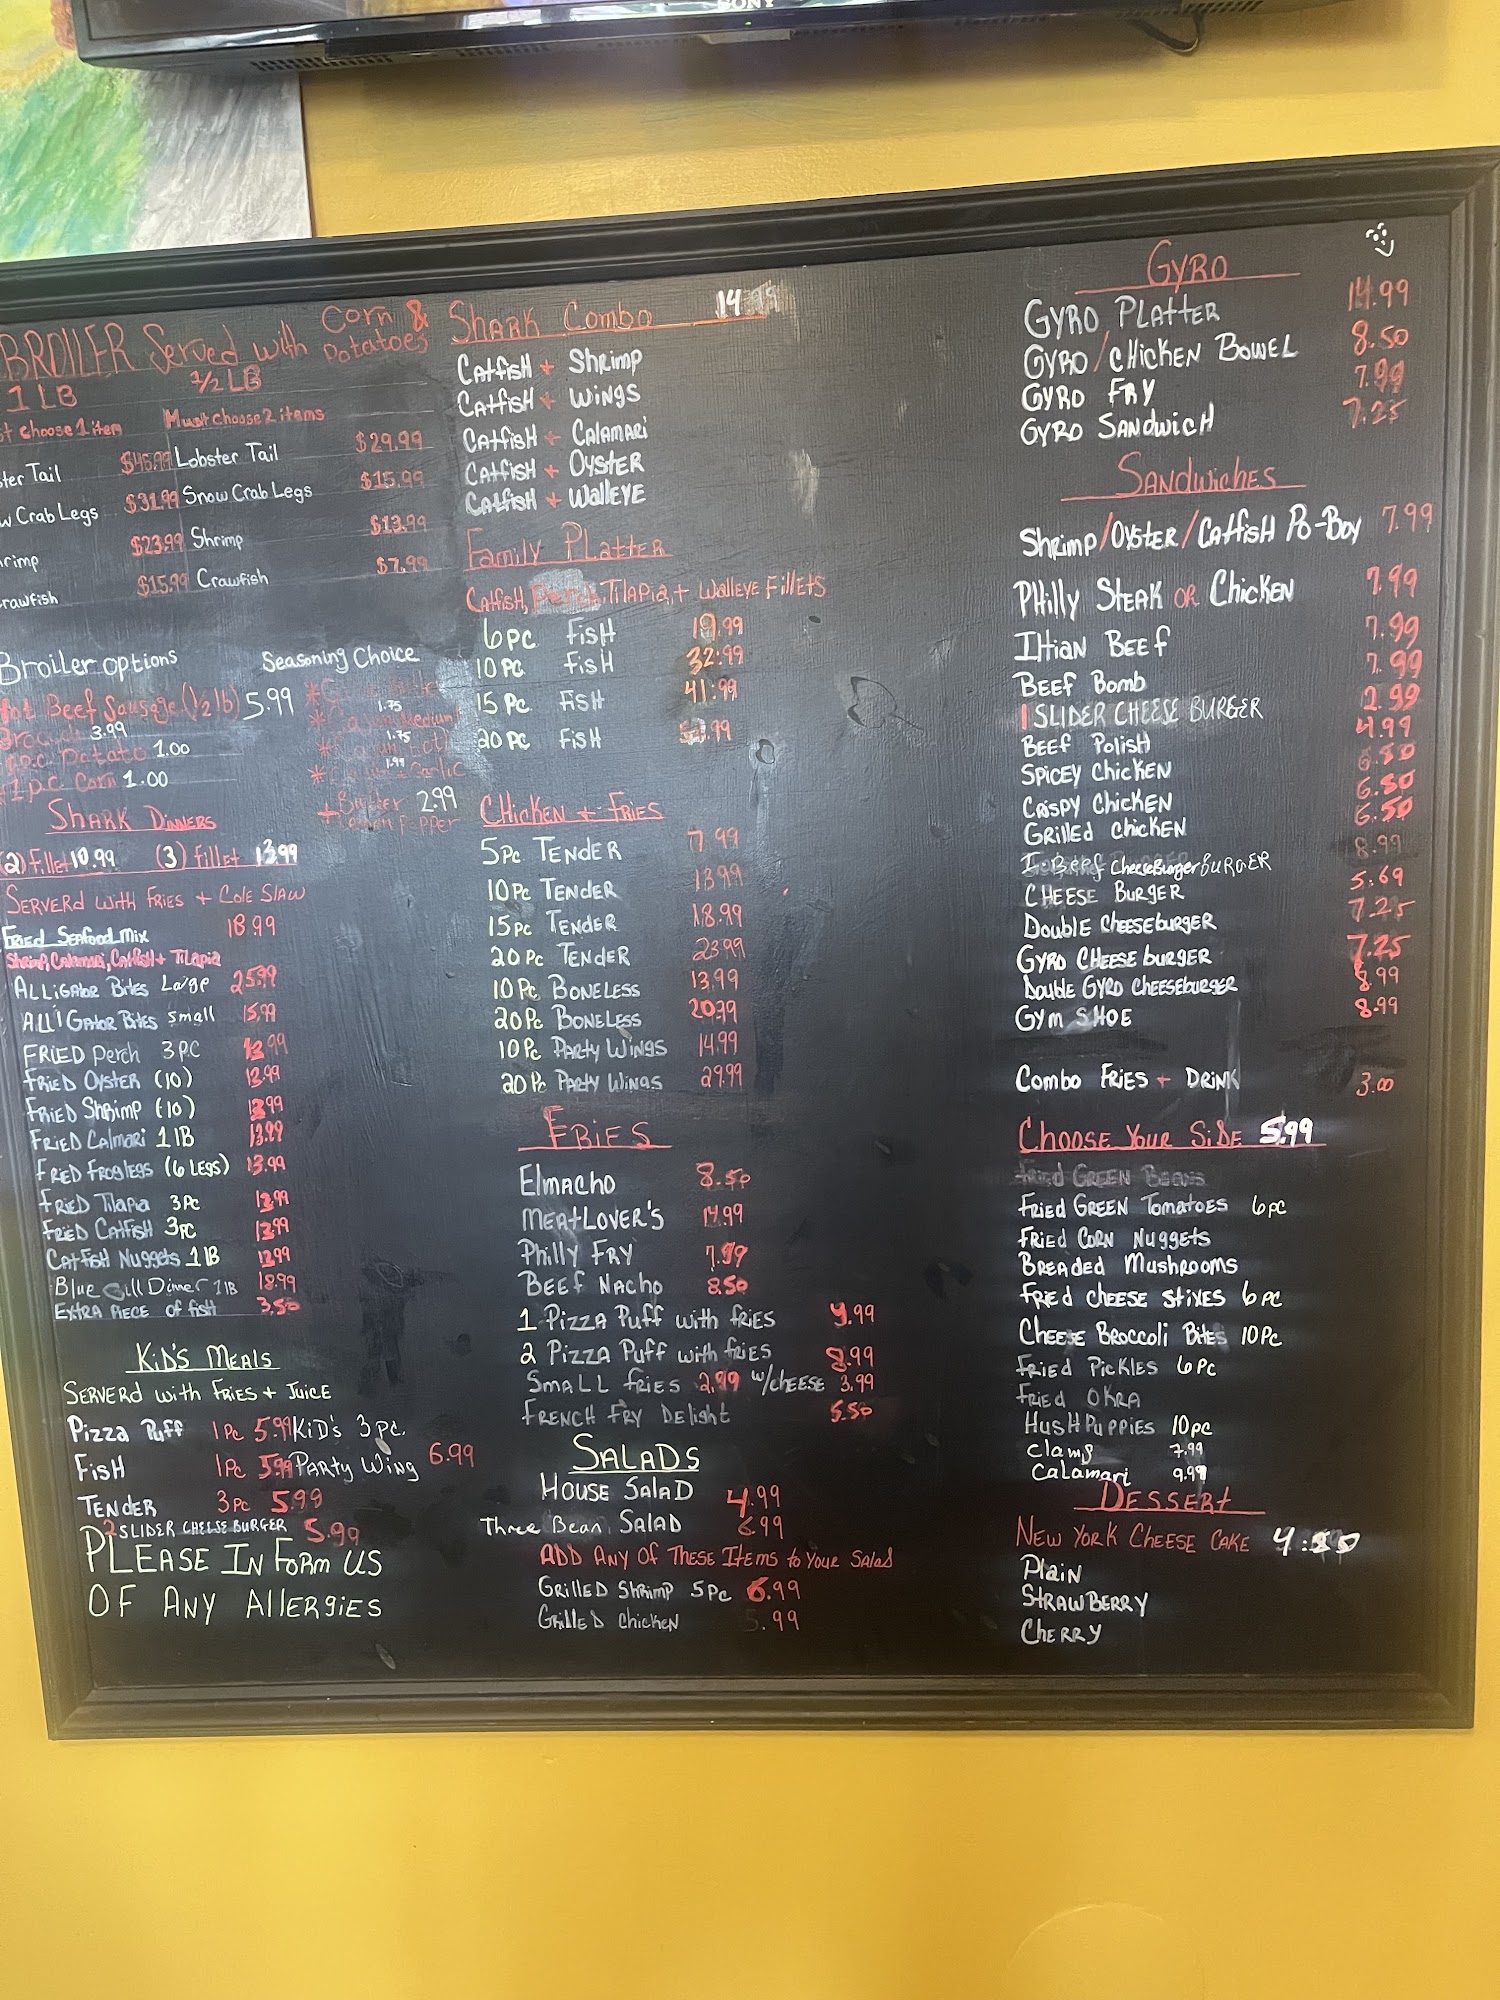 SONY
BROILER Served with Corn & Potatoes
1 LB 1/2 LB
choose 1 item Must choose 2 items
Tail Lobster Tail $29.99
Crab Legs $31.99 Snow Crab Legs $15.99
$23.99 Shrimp $13.99
$15.99 Crawfish $7.99
Broiler options Seasoning Choice
Beef Sausage (1/2 lb) 5.99
3.99 1.75
1.pc. Potato 1.00 1.75
1 p.c. Corn 1.00 1.99
Garlic
Butter 2.99
Lemon Pepper
SHARK DINNERS
(2) Fillet 10.99 (3) fillet 13.99
SERVERd with FRIES + Cole Slaw
FRIED SEAFOOD MIX 18.99
Shrimp, Calamari, Catfish + Tilapia
ALLiGAtor Bites Large 25.99
All'GAtor Bites small 15.99
FRIED Perch 3PC 13.99
FRIED OYSTER (10) 13.99
FRIED SHRIMP (10) 13.99
FRIED CAlmARi 1 lB 13.99
FRIED FROglEgs (6 LEgs) 13.99
FRIED TilApia 3 Pc 13.99
FRIED CAtfisH 3PC 13.99
CAtfisH NuggEts 1 lB 13.99
Blue Gill Dinner 1 lB 18.99
EXTRA PiECE of fish 3.50
KiD'S MEALS
SERVERd with FRiES + JuicE
Pizza Puff 1 Pc 5.99 KiD's 3 pc.
FisH 1Pc 5.99 PARty WiNg 6.99
TENDER 3 Pc 5.99
2 SLIDER CHEESE BURGER 5.99
PLEASE IN FoRm US
OF ANY AllERgiES
SHARK Combo 14.99
CAtfisH + SHRimp
CAtfisH + WiNgS
CAtfisH + CAlAmARi
CAtfisH + OySTER
CAtfisH + WAllEYE
Family PlAttER
CAtfisH, TilApiA, + WAllEYE FillEtS
6 PC FisH 19.99
10 PC FisH 32.99
15 PC FisH 41.99
20 PC FisH
CHickEN + FRiES
5Pc TENDER 7.99
10 Pc TENDER 13.99
15 Pc TENDER 18.99
20 Pc TENDER 23.99
10 Pc BoNELESS 13.99
20 Pc BoNELESS 20.79
10 Pc PARty WiNgs 14.99
20 Pc PARty WiNgs 29.99
FRiES
ElmAcHo 8.50
MEAtLOVER'S 14.99
PHilly FRY 7.99
BEEF NAcHo 8.50
1 Pizza Puff with fRiES 4.99
2 Pizza Puff with fRiES 8.99
SmALL fRiES 2.99 w/cHEESE 3.99
FRENCH FRy DElight 5.50
SALADS
HOUSE SALAD 4.99
Three Bean SALAD 6.99
ADD ANY OF THESE ITEMS to YouR SAlAd
GRillED SHRimp 5 Pc 6.99
GRillED CHickEN 5.99
GYRO
GYRO PlAttER 14.99
GYRO/CHickEN BoWEL 8.50
GYRO FRY 7.99
GYRO SANdwicH 7.25
SANdwicHES
SHRimp/OYSTER/CAtfisH Po-Boy 7.99
PHilly STEAK OR CHickEN 7.99
ItiAN BEEf 7.99
BEEF BomB 7.99
1 SLIDER CHEESE BURGER 2.99
BEEF PolisH 4.99
SPicEY CHickEN 6.50
CRispY CHickEN 6.50
GRillED CHickEN 6.50
I. Beef CheeseBurger BURGER 8.99
CHEESE BuRgER 5.69
DoublE CHEESEbuRgER 7.25
GYRO CHEESE buRgER 7.25
DoublE GYRO CHEESEbuRgER 8.99
GYm SHOE 8.99
Combo FRiES + DRiNK 3.00
CHooSE YouR SiDE 5.99
FRiED GREEN BEANS
FRiED GREEN TomAtoES 6 PC
FRiED CoRN NuggEtS
BREADED MusHRoomS
FRiED CHEESE StiXES 6 PC
CHEESE BRoccoli BitES 10 Pc
FRiED PicklES 6 PC
FRiED OKRA
HusH PuppiES 10 PC
Clams 7.99
Calamari 9.99
DESSERt
NEW YoRK CHEESE CAKE
PlAiN
StRAwBERRY
CHERRY